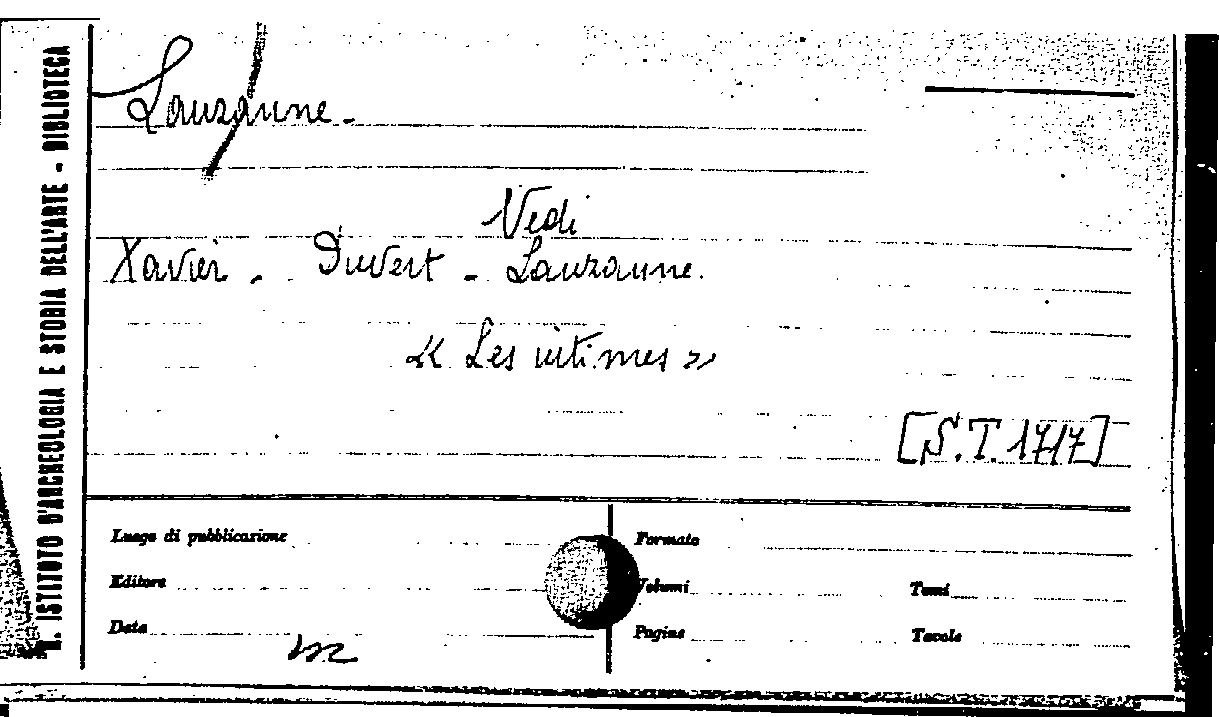 R. ISTITUTO D'ARCHEOLOGIA E STORIA DELL'ARTE - BIBLIOTECA
Lauzanne.
Vedi
Xavier - Duvert - Lauzanne.
« Les vitimes »
[S.T. 17/7]
Luogo di pubblicazione
Formato
Editore
Volumi
Tomi
Data
Pagine
Tavole